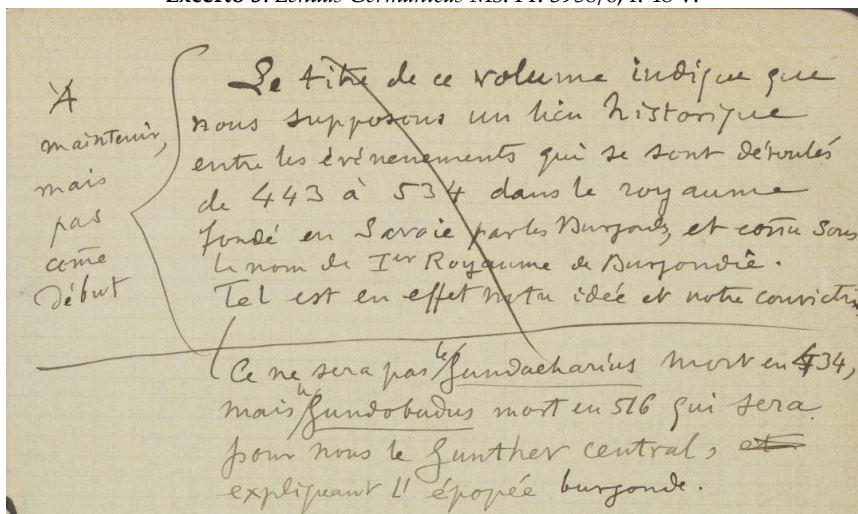 Lendas Germânicas Ms. Fr. 3958/6, f.
A
maintenir,
mais
pas
com̄e
début
Le titre de ce volume indique que
nous supposons un lien historique
entre les événements qui se sont déroulés
de 443 à 534 dans le royaume
fondé en Savoie par les Burgondes, et con̄u sous
le nom de Ier Royaume de Burgondie.
Tel est en effet notre idée et notre conviction
Ce ne sera pas le Gundacharius mort en 434,
mais le Gundobadus mort en 516 qui sera
pour nous le Gunther central, et
expliquant l'épopée burgonde.